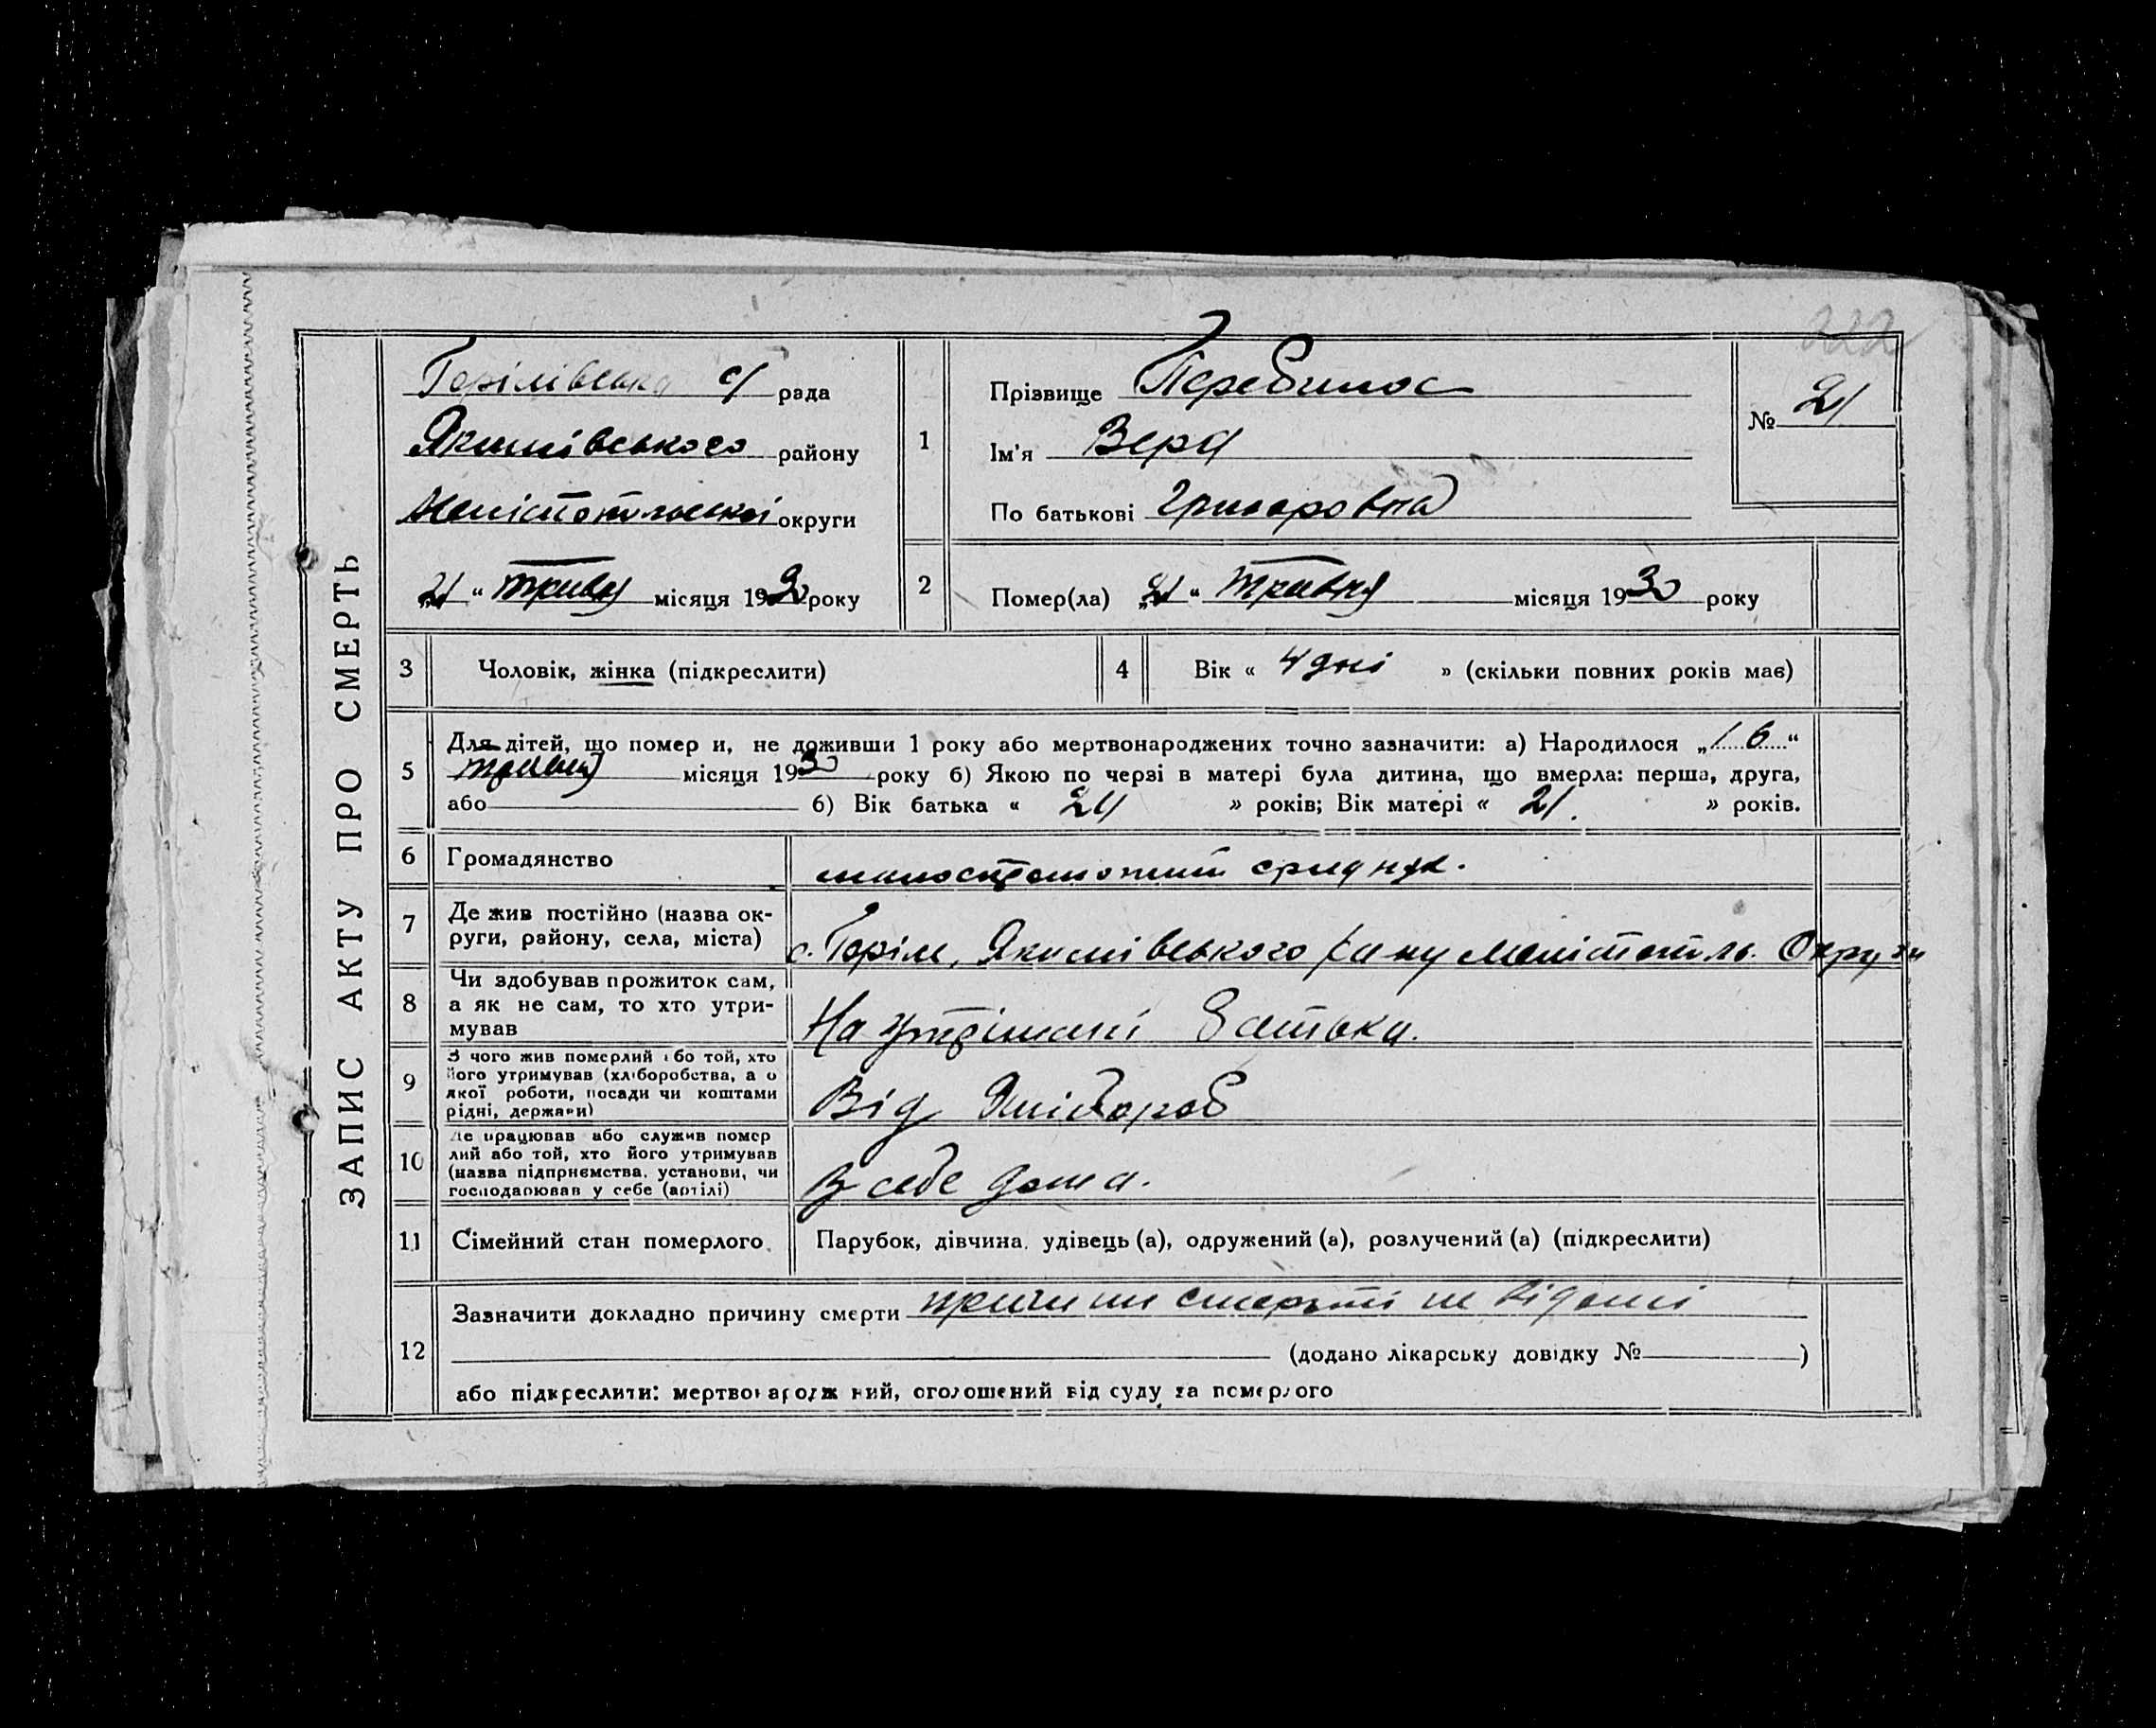 222
ЗАПИС АКТУ ПРО СМЕРТЬ
Горілівська с/ рада
Якимівського району
Мелітопольської округи
„21“ травня місяця 1930 року
1
Прізвище Перебинос
Ім'я Вера
По батькові Григоровна
№ 21
2
Помер(ла) „21“ травня місяця 1930 року
3 Чоловік, жінка (підкреслити)
4 Вік « 4 дні » (скільки повних років має)
5
Для дітей, що помер и, не доживши 1 року або мертвонароджених точно зазначити: а) Народилося „16“
травня місяця 1930 року б) Якою по черзі в матері була дитина, що вмерла: перша, друга,
або б) Вік батька « 24 » років; Вік матері « 21. » років.
6 Громадянство
7 Де жив постійно (назва ок-
руги, району, села, міста)
с. Горіле, Якимівського р/ану Мелітотпль. Округи
8 Чи здобував прожиток сам,
а як не сам, то хто утри-
мував
На утрімані батька.
9 З чого жив померлий або той, хто
його утримував (хліборобства, а о
якої роботи, посади чи коштами
рідні, держави)
Від хлібороб
10 Де працював або служив помер
лий або той, хто його утримував
(назва підприємства, установи, чи
господарював у себе (артілі)
В себе дома.
11 Сімейний стан померлого.
Парубок, дівчина, удівець (а), одружений (а), розлучений (а) (підкреслити)
12
Зазначити докладно причину смерти причини смерьті не відомі
(додано лікарську довідку № )
або підкреслити: мертвонароджений, оголошений від суду за померлого